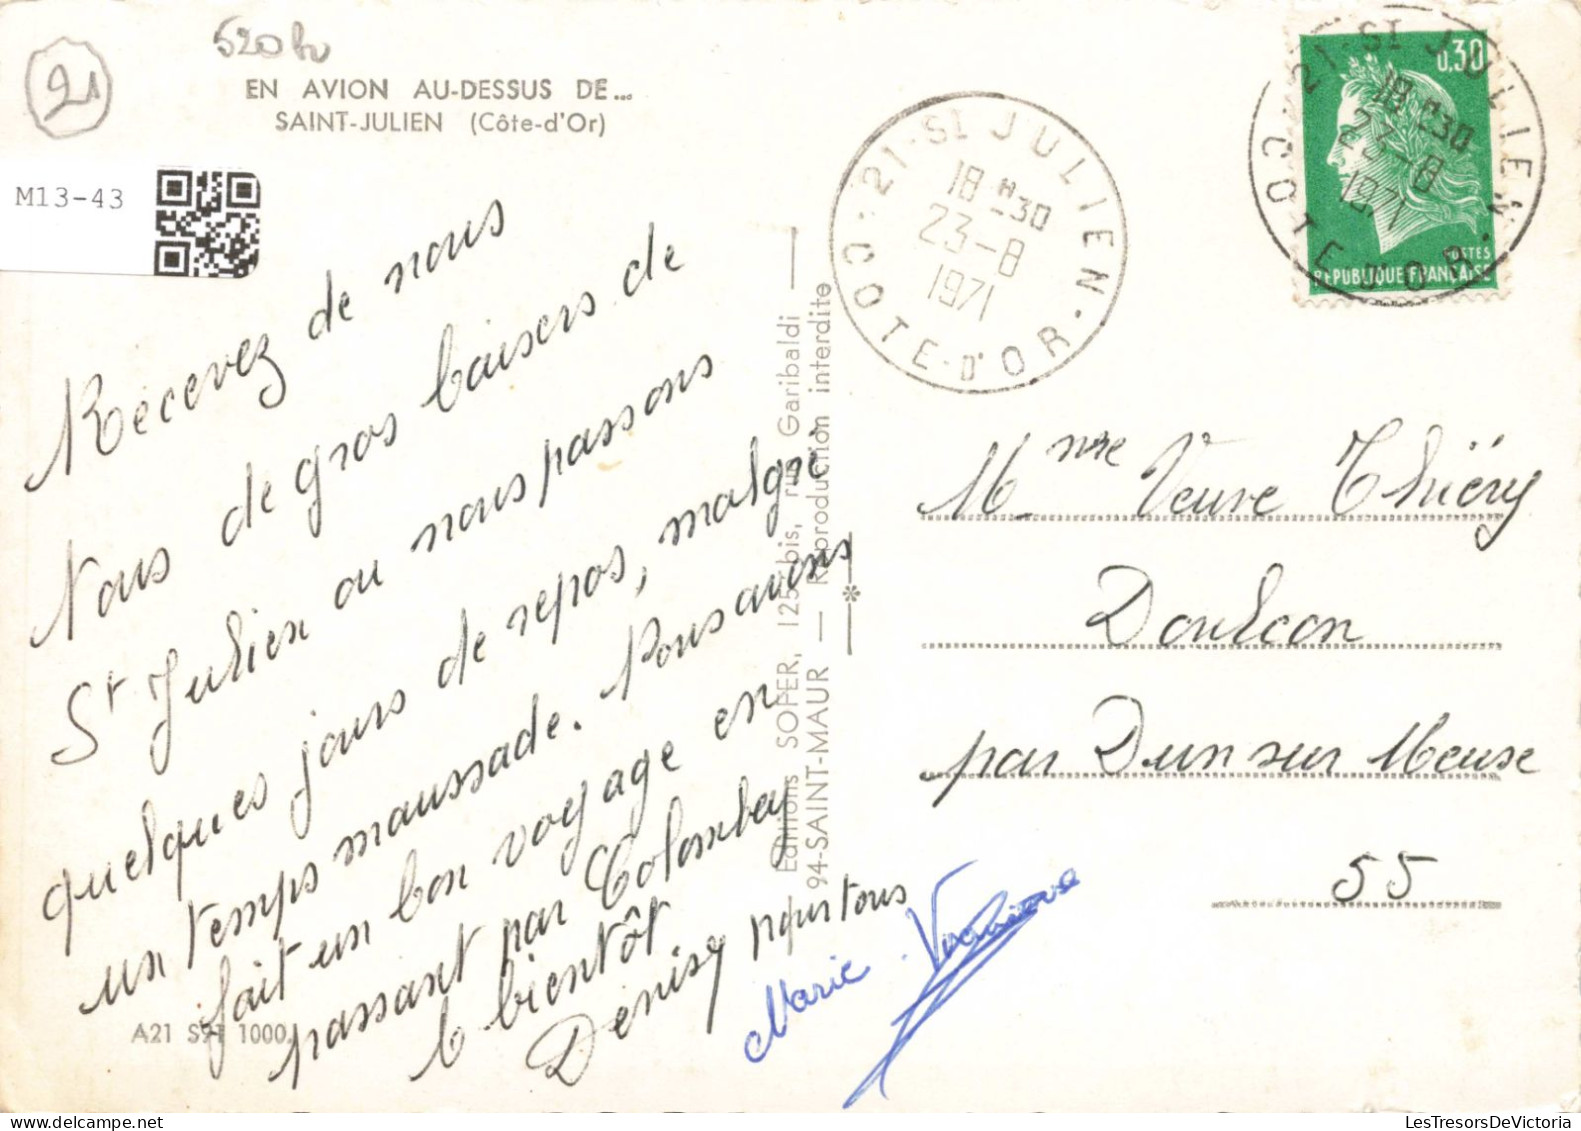 520 hv
21
EN AVION AU-DESSUS DE...
SAINT-JULIEN (Côte-d'Or)
M13-43
Recevez de nous
Nous de gros baisers de
St Julien ou nous passons
quelques jours de repos, malgré
un temps maussade. Nous avons
fait un bon voyage en
passant par Colombey
à bientôt
Denise pour tous
Marie-Victoire
A21 S91 1000
Editions SOFER, 125 bis, rue Garibaldi —
94-SAINT-MAUR — Reproduction interdite
21-St JULIEN
18H30
23-8
1971
COTE-D'OR
0,30
POSTES
REPUBLIQUE FRANÇAISE
21-St JULIEN
18H30
23-8
1971
COTE-D'OR
Mme Veuve Thiéry
Doulcon
par Dun sur Meuse
55
LesTresorsDeVictoria.com